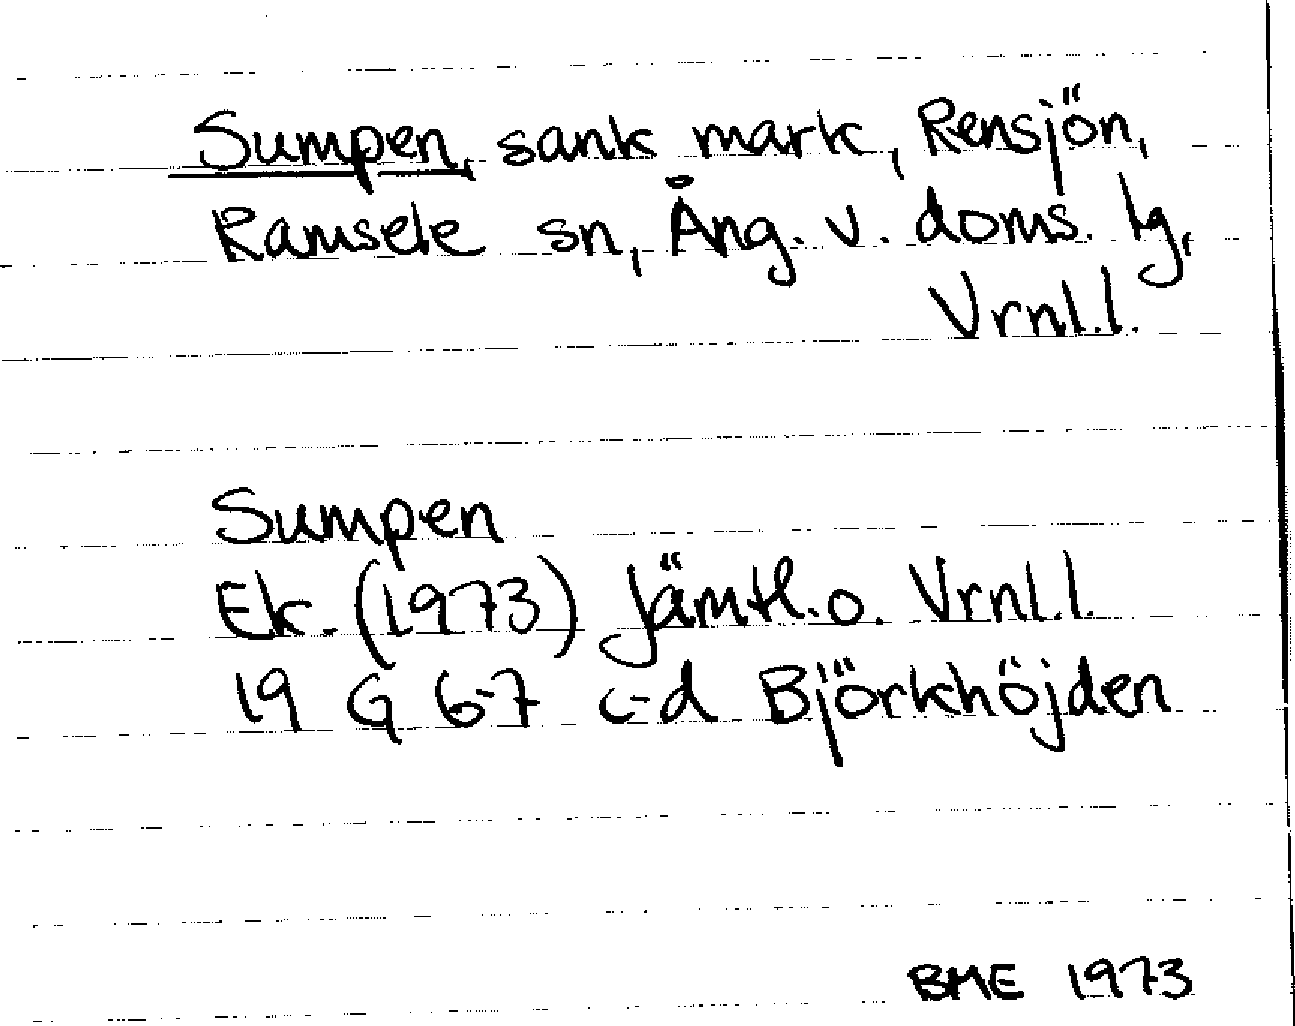 Sumpen, sank mark, Rensjön,
Ramsele sn, Ång. v. doms. lg,
Vrnl.l.
Sumpen
Ek. (1973) Jämtl.o. Vrnl.l.
19 G 6-7 c-d Björkhöjden
BME 1973